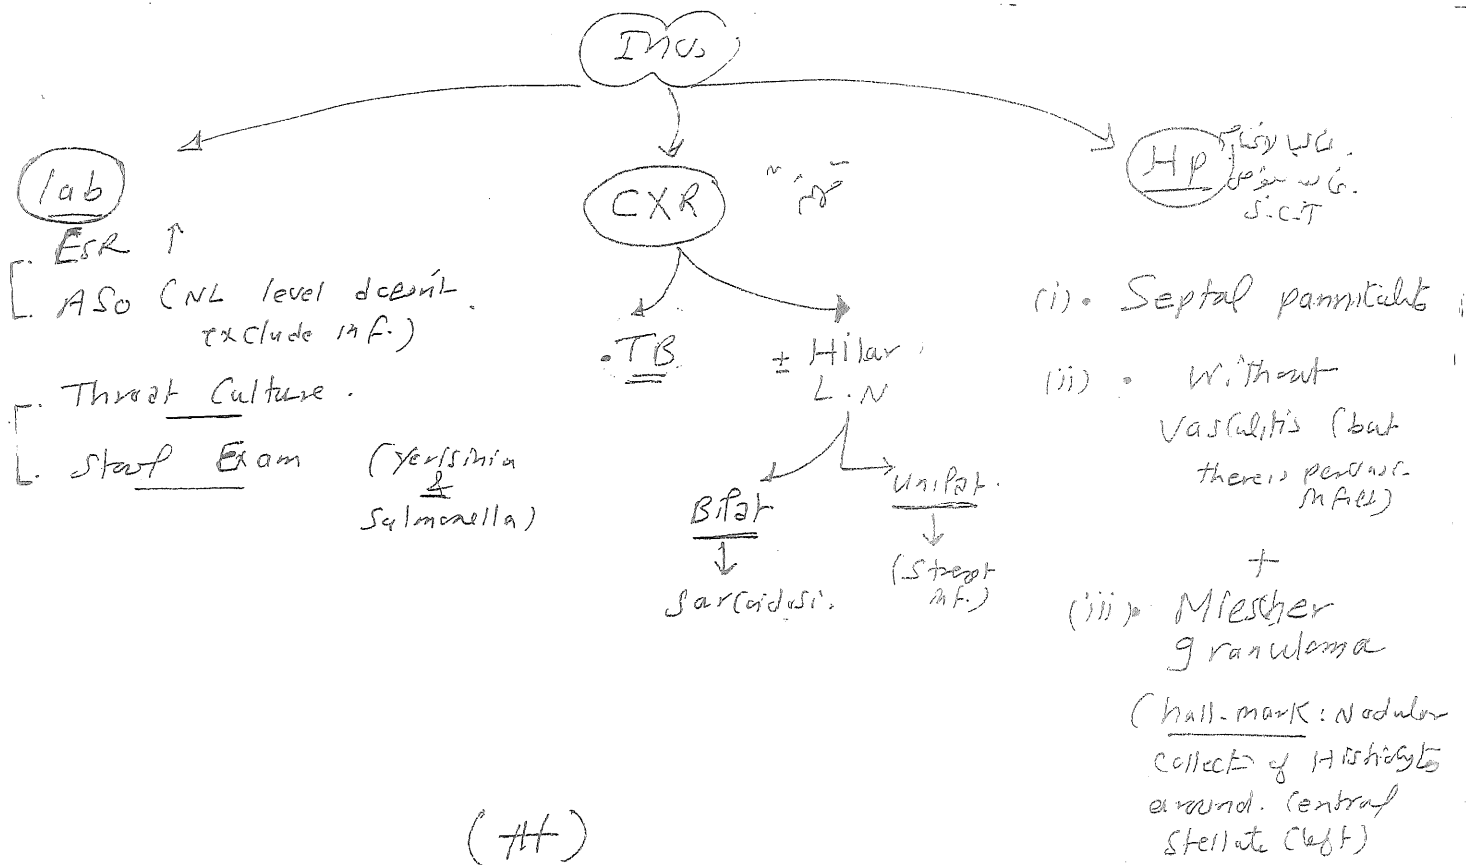 Invs
lab
ESR ↑
ASO (NL level doesn't
exclude inf.)
Throat Culture.
Stool Exam (Yersinia
&
Salmonella)
CXR
TB
± Hilar
L.N
Bilat
↓
Sarcoidosi.
Unilat.
↓
(Strept
inf.)
HP
غالبا
S.C.T
(i). Septal panniculitis
(ii). Without
Vasculitis (but
there is perivasc.
infilt)
+
(iii). Miescher
granuloma
(hall-mark: Nodular
collect of Histiocytes
around. Central
Stellate cleft)